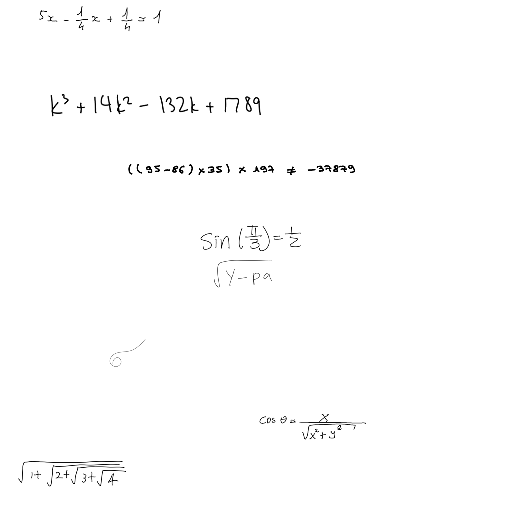 5x - \frac{1}{4}x + \frac{1}{4} = 1
k^3 + 14k^2 - 132k + 1789
((95-86) \times 35) \times 197 \neq -37879
\sin(\frac{\pi}{3}) = \frac{1}{2}
\sqrt{y - pa}
σ
\cos θ = \frac{x}{\sqrt{x^2 + y^2}}
\sqrt{1 + \sqrt{2 + \sqrt{3 + \sqrt{4}}}}